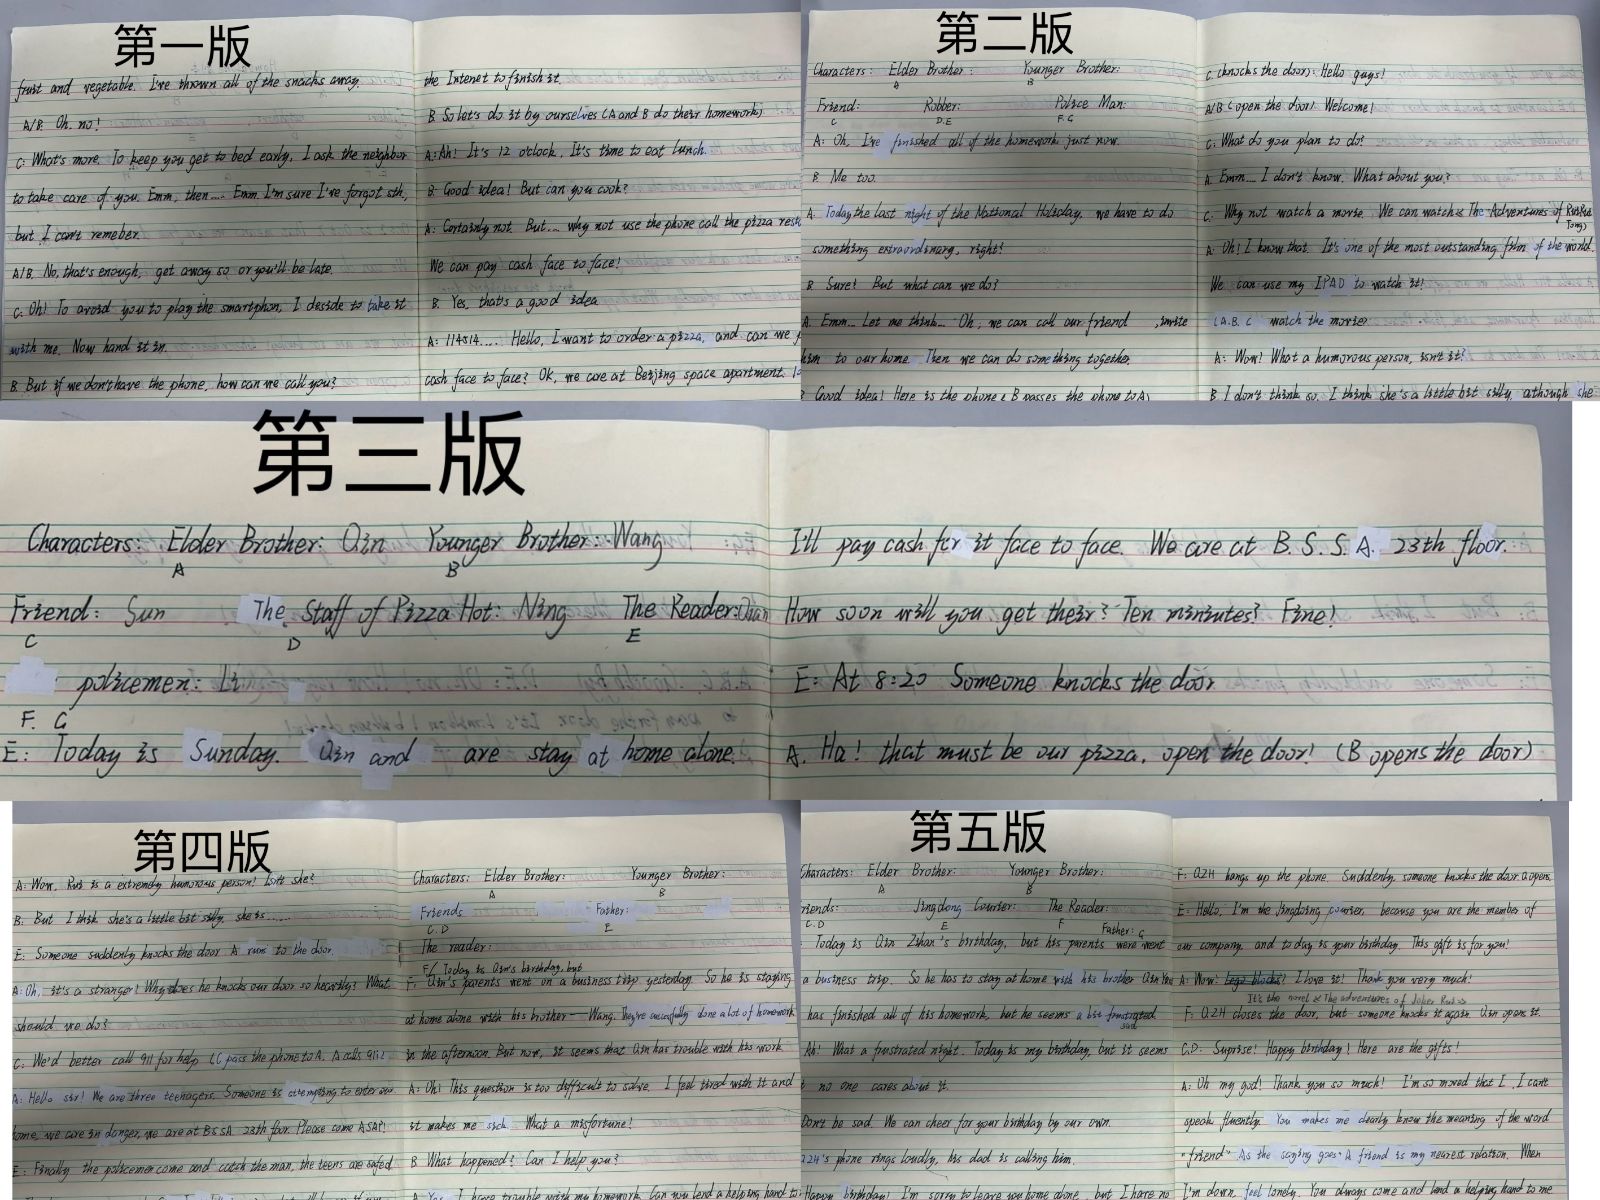 第一版
fruit and vegetable. I've thrown all of the snacks away.
A/B: Oh. no!
C: What's more. To keep you get to bed early, I ask the neighbor
to take care of you. Emm, then.... Emm I'm sure I've forgot sth,
but I can't remeber.
A/B. No, that's enough, get away so or you'll be late.
C: Oh! To avoid you to play the smartphon, I deside to take it
with me. Now hand it in.
B. But if we don't have the phone, how can we call you?
the Intenet to finish it.
B. So let's do it by ourselves (A and B do their homework)
A: Ah! It's 12 o'clock. It's time to eat lunch.
B: Good idea! But can you cook?
A: Certainly not. But... why not use the phone call the pizza rest
We can pay cash face to face!
B. Yes, that's a good idea
A: 114514.... Hello, I want to order a pizza, and can we p
cash face to face? OK, we are at Beijing space apartment.
第二版
Characters: Elder Brother: Younger Brother:
A B
Friend: Robber: Police Man:
C D.E F.G
A: Oh, I've finished all of the homework just now.
B Me too.
A. Today the last night of the National Holiday. we have to do
something extraordinary, right?
B Sure! But what can we do?
A. Emm... Let me think... Oh, we can call our friend , invite
him to our home. Then we can do something together.
Good idea! Here is the phone (B passes the phone to A)
C. (knocks the door): Hello guys!
A/B (open the door) Welcome!
C: What do you plan to do?
A. Emm.... I don't know. What about you?
C: Why not watch a movie. We can watch « The Adventures of RuiRui
Tong»
A: Oh! I know that. It's one of the most outstanding film of the world.
We can use my IPAD to watch it!
(A. B. C watch the movie)
A: Wow! What a humorous person, isn't it?
B I don't think so. I think she's a little bit silly, although she
第三版
Characters: Elder Brother: Qin Younger Brother: Wang
A B
Friend: Sun The Staff of Pizza Hot: Ning The Reader:
C D E
policemen: Li
F. G
E: Today is Sunday. Qin and are stay at home alone.
I'll pay cash for it face to face. We are at B. S. S. A. 23th floor.
How soon will you get their? Ten miniutes? Fine!
E: At 8:20 Someone knocks the door
A. Ha! that must be our pizza, open the door! (B opens the door)
第四版
A: Wow. Rui is a extremely humorous person! Isn't she?
B. But I think she's a little bit silly she is......
E: Someone suddenly knocks the door A runs to the door.
A: Oh, it's a stranger! Why does he knocks our door so heavily? What
should we do?
C: We'd better call 911 for help (C pass the phone to A. A calls 911)
A: Hello sir! We are three teenagers. Someone is attempting to enter our
home, we are in danger, we are at BSSA 23th floor. Please come ASAP!
E: Finally the policemen come and catch the man, the teens are safed.
Characters: Elder Brother: Younger Brother:
A B
Friends Father:
C. D E
The reader:
F/ Today is Qin's birthday, but
F: Qin's parents went on a business trip yesterday. So he is staying
at home alone with his brother — Wang. They're succesfully done a lot of homework
in the afternoon. But now, it seems that Qin has trouble with his work
A: Oh! This question is too difficult to solve. I feel tired with it and
it makes me sick. What a misfortune!
B What happened? Can I help you?
A Yes. I have trouble with my homework. Can you lend a helping hand to
第五版
Characters: Elder Brother: Younger Brother:
A B
riends: Jingdong Courier: The Reader:
C. D E F Father: G
Today is Qin Zihan's birthday, but his parents were went
a business trip. So he has to stay at home with his brother Qin
has finished all of his homework, but he seems a bit frustrated
sad
Ah! What a frustrated night. Today is my birthday, but it seems
no one cares about it.
Don't be sad. We can cheer for your birthday by our own.
's phone rings loudly, his dad is calling him.
Happy birthday! I'm sorry to leave you home alone, but I have no
F: QZH hangs up the phone. Suddenly, someone knocks the door. Q opens
E: Hello, I'm the Jingdong courier, because you are the member of
our company, and to day is your birthday. This gift is for you!
A: Wow! Lego blocks? I love it! Thank you very much!
It's the novel « The adventures of Joker Rui »
F: QZH closes the door, but someone knocks it again. Qin opens it.
C.D: Suprise! Happy birthday! Here are the gifts!
A: Oh my god! Thank you so much! I'm so moved that I , I can't
speak fluently. You makes me clearly know the meaning of the word
"friend". As the saying goes "A friend is my nearest relation. When
I'm down, feel lonely. You always come and lend a helping hand to me